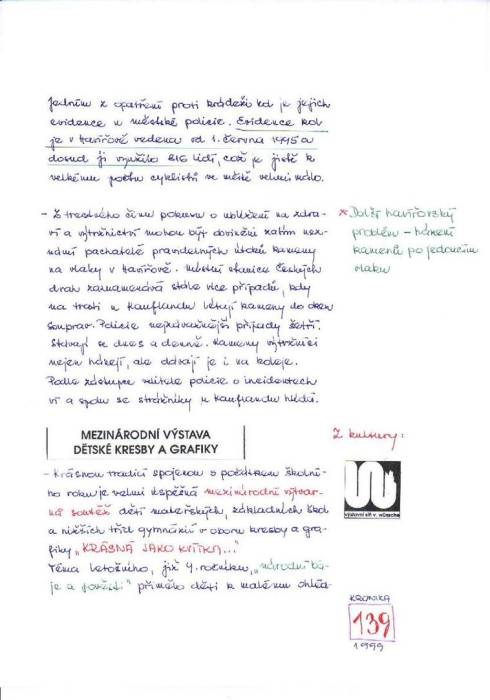 Jedním z opatření proti krádeži kol je jejich
evidence u městské policie. Evidence kol
je v Havířově vedena od 1. června 1995 a
dosud ji využilo 816 lidí, což je jistě k
velkému počtu cyklistů ve městě velmi málo.
- Z trestného činu pokusu o ublížení na zdra-
ví a výtržnictví mohou být obviněni zatím nez-
námí pachatelé pravidelných útoků kameny
na vlaky v Havířově. Místní stanice Českých
drah zaznamenává stále více případů, kdy
na trati u Kauflandu létají kameny do oken
souprav. Policie nejzávažnější případy šetří.
Stávají se dnes a denně. Kameny výtržníci
nejen hází, ale dávají je i na koleje.
Podle zástupce velitele policie o incidentech
ví a spolu se strážníky u Kauflandu hlídá.
* Další havířovský
problém – házení
kamenů po jedoucím
vlaku
MEZINÁRODNÍ VÝSTAVA
DĚTSKÉ KRESBY A GRAFIKY
Z kultury:
- Krásnou tradicí spojenou s počátkem školní-
ho roku je velmi úspěšná mezinárodní výtvar-
ná soutěž dětí mateřských, základních škol
a nižších tříd gymnázií v oboru kresby a gra-
fiky „KRÁSNÁ JAKO KVÍTKA..."
Téma letošního, již 4. ročníku, „národní bá-
je a pověsti" přimělo děti k malému ohléd-
výstavní síň v. wünsche
KRONIKA
139
1999